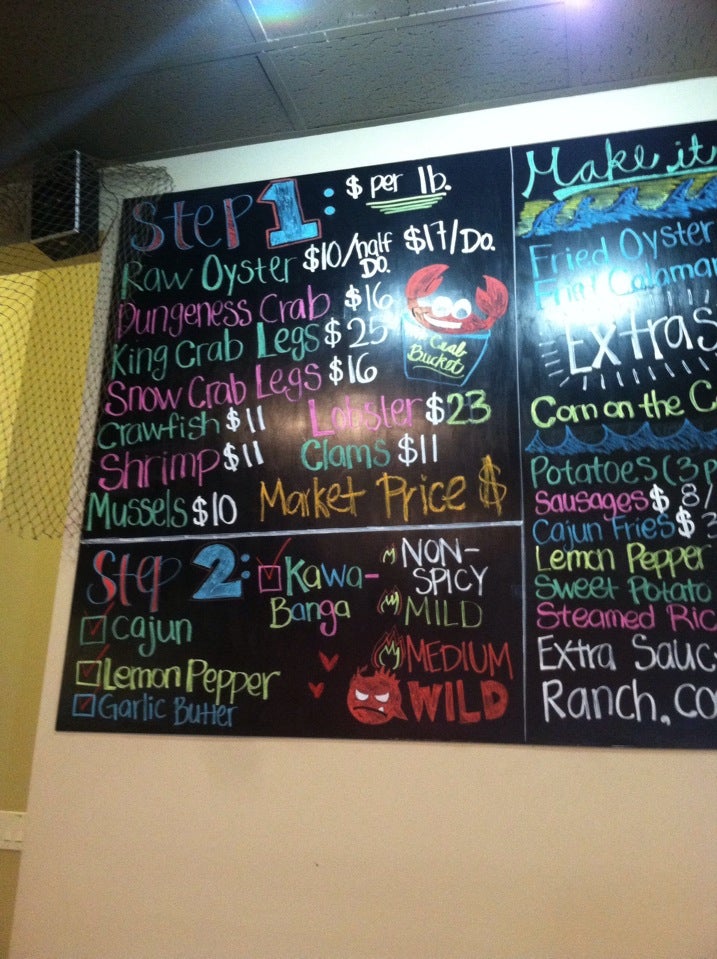 Step 1: $ per lb.
Raw Oyster $10/half Do. $17/Do.
Dungeness Crab $16
King Crab Legs $25
Snow Crab Legs $16
Crawfish $11 Lobster $23
Shrimp $11 Clams $11
Mussels $10 Market Price $
Crab
Bucket
Step 2:
Cajun
Lemon Pepper
Garlic Butter
Kawa-
Banga
NON-
SPICY
MILD
MEDIUM
WILD
Make it
Fried Oyster
Fried Calamar
Extras
Corn on the C
Potatoes (3 p
Sausages $ 8/
Cajun Fries $3
Lemon Pepper
Sweet Potato
Steamed Ric
Extra Sauc
Ranch, Co